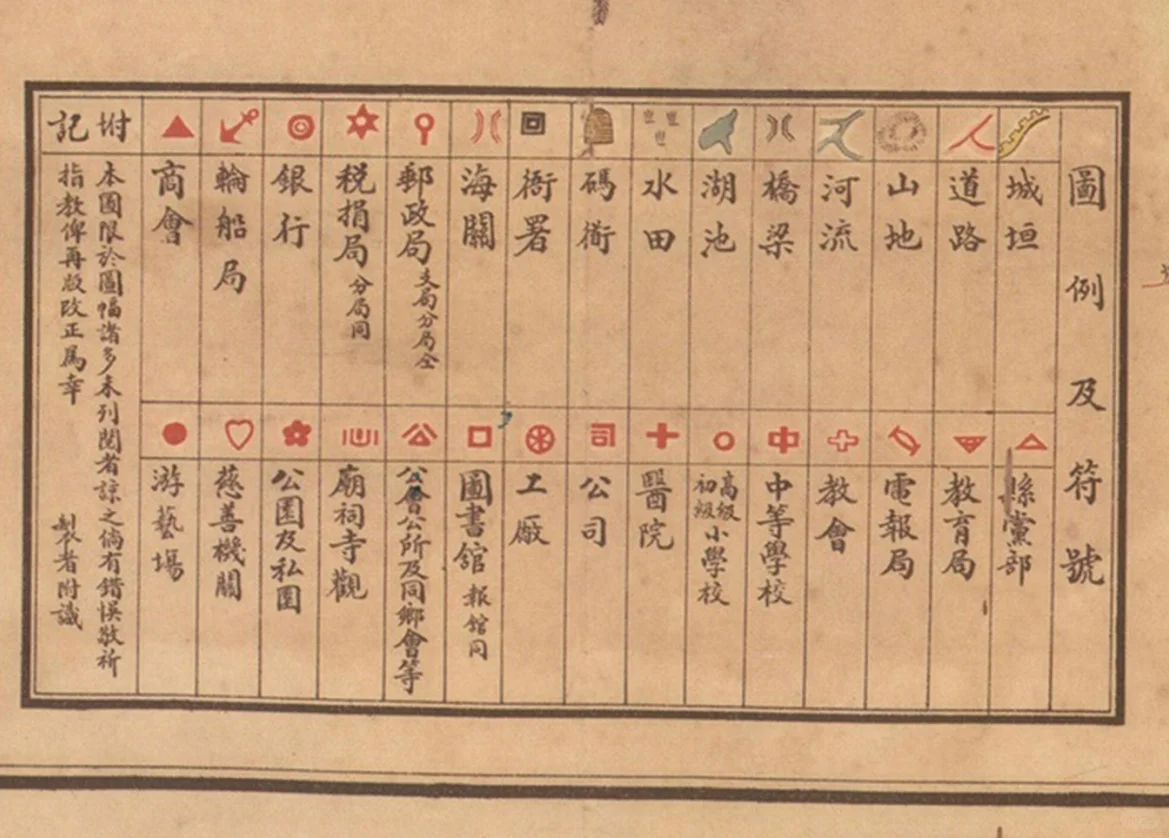 圖例及符號
城垣
道路
山地
河流
橋梁
湖池
水田
碼衕
衙署
海關
郵政局 支局分局仝
税捐局 分局同
銀行
輪船局
商會
縣黨部
教育局
電報局
教會
中等學校
高級初級小學校
醫院
公司
工廠
圖書舘 報舘同
公會公所及同鄉會等
廟祠寺觀
公園及私園
慈善機關
游藝場
附記
本圖限於圖幅諸多未列閱者諒之倘有錯悞敬祈
指教俾再版改正爲幸 製者附識